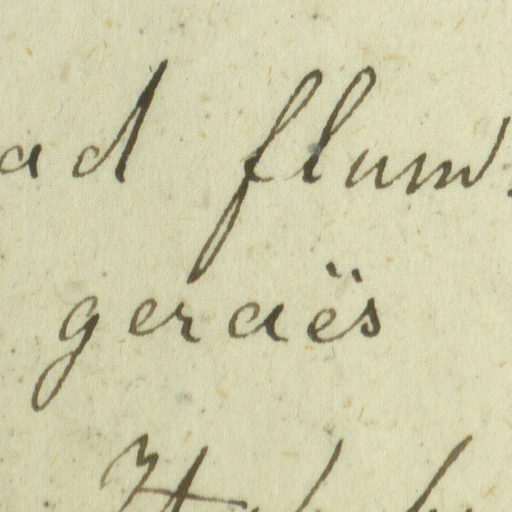 ad flum.
geraës